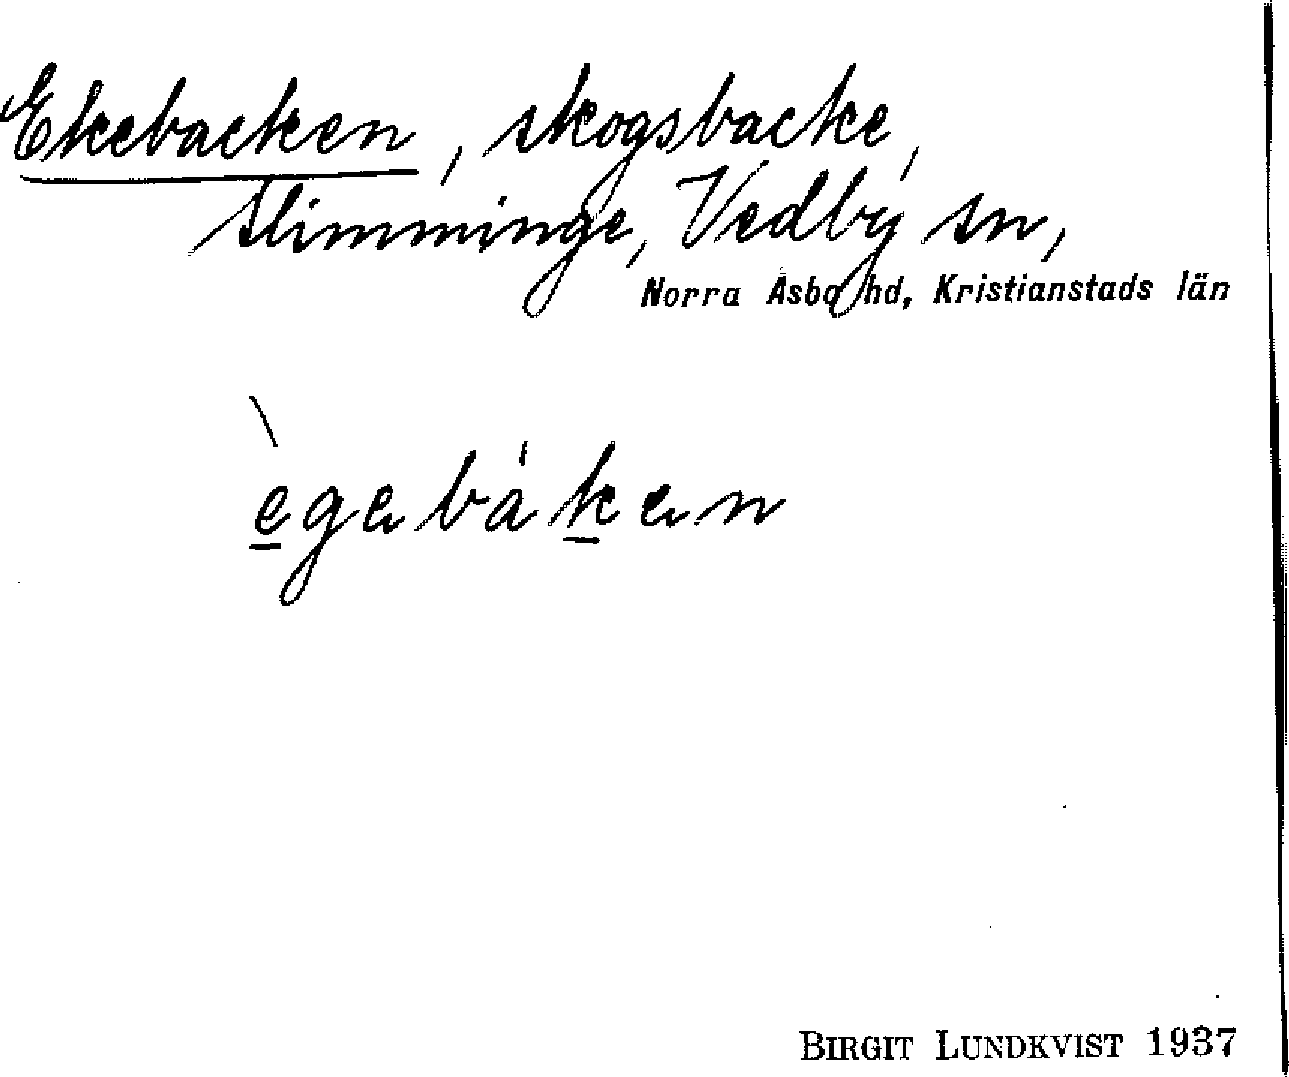 Ekebacken, skogsbacke,
Slimminge, Vedby sn,
Norra Åsbo hd, Kristianstads län
ègebàken
BIRGIT LUNDKVIST 1937